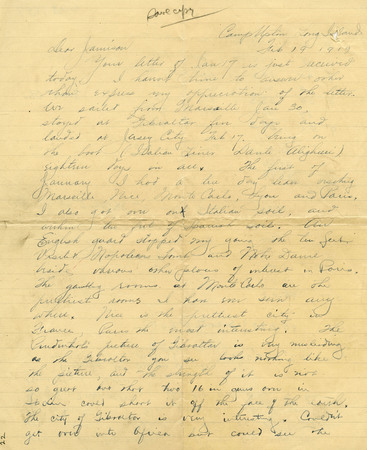 Save copy
Camp Upton Long Island
Feb 19th 1919
Dear Jamison
Your letter of Jan 17 is just received
today. I haven't time to answer other
than express my appreciation of the letter.
We sailed from Marseille Jan 30,
stayed at Gibraltar five days and
landed at Jersey City Feb 17. Being on
the boat (Italian Liner Dante Alighieri)
eighteen days in all. The first of
January I had a ten day leave visiting
Marseille Nice Monte Carlo, Lyon and Paris.
I also got over on Italian soil, and
within ten feet of Spanish soil. The
English guard stopped my going the ten feet.
Visited Napoleons Tomb and Notre Dame
beside various other places of interest in Paris.
The gambling rooms at Monte Carlo are the
prettiest rooms I have ever seen any
where. Nice is the prettiest city in
France Paris the most interesting. The
Prudential picture of Gibraltar is very misleading
as the Gibraltar you see looks nothing like
the picture, and the strength of it is not
so great as two 16 in guns over in
Spain could shoot it off the face of the earth.
The city of Gibraltar is very interesting. Couldn't
get over into Africa and could see the